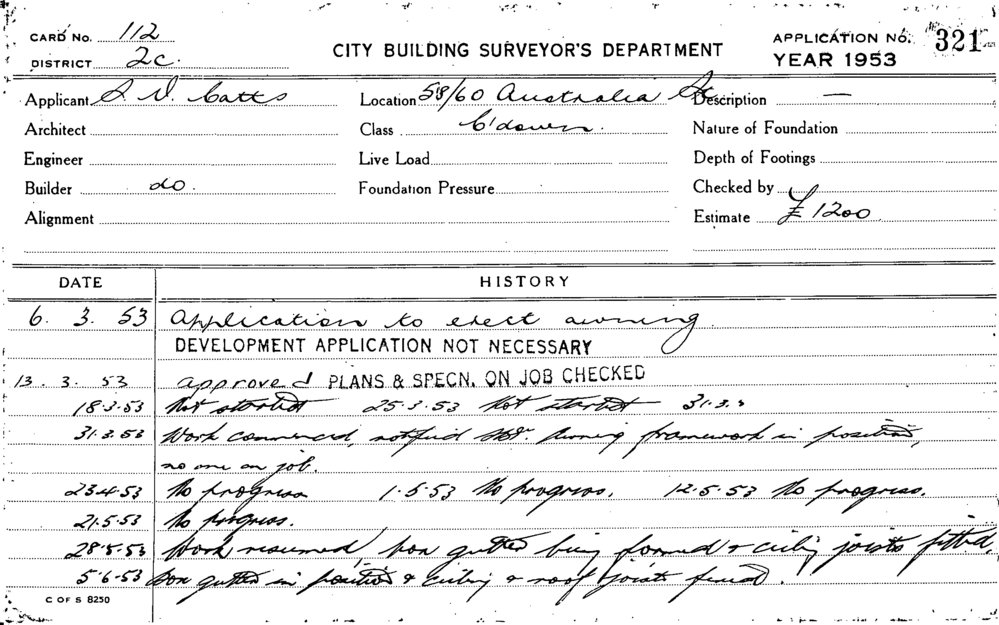 CARD No. 112
DISTRICT 2C.
CITY BUILDING SURVEYOR'S DEPARTMENT
APPLICATION No. 321
YEAR 1953
Applicant S. V. Catts Location 58/60 Australia St Description —
Architect Class C'down. Nature of Foundation
Engineer Live Load Depth of Footings
Builder do. Foundation Pressure Checked by
Alignment Estimate £1200
DATE HISTORY
6. 3. 53 Application to erect awning
DEVELOPMENT APPLICATION NOT NECESSARY
13. 3. 53 approved PLANS & SPECN. ON JOB CHECKED
18.3.53 Not started 25.3.53 Not started 31.3.
31.3.53 Work commenced, notified Awning framework in position,
no one on job.
23.4.53 No progress 1.5.53 No progress. 12.5.53 No progress.
21.5.53 No progress.
28.5.53 Work resumed, box gutter being formed & ceiling joists fitted,
5.6.53 box gutter in position & ceiling & roof joists fixed.
C OF S 8250